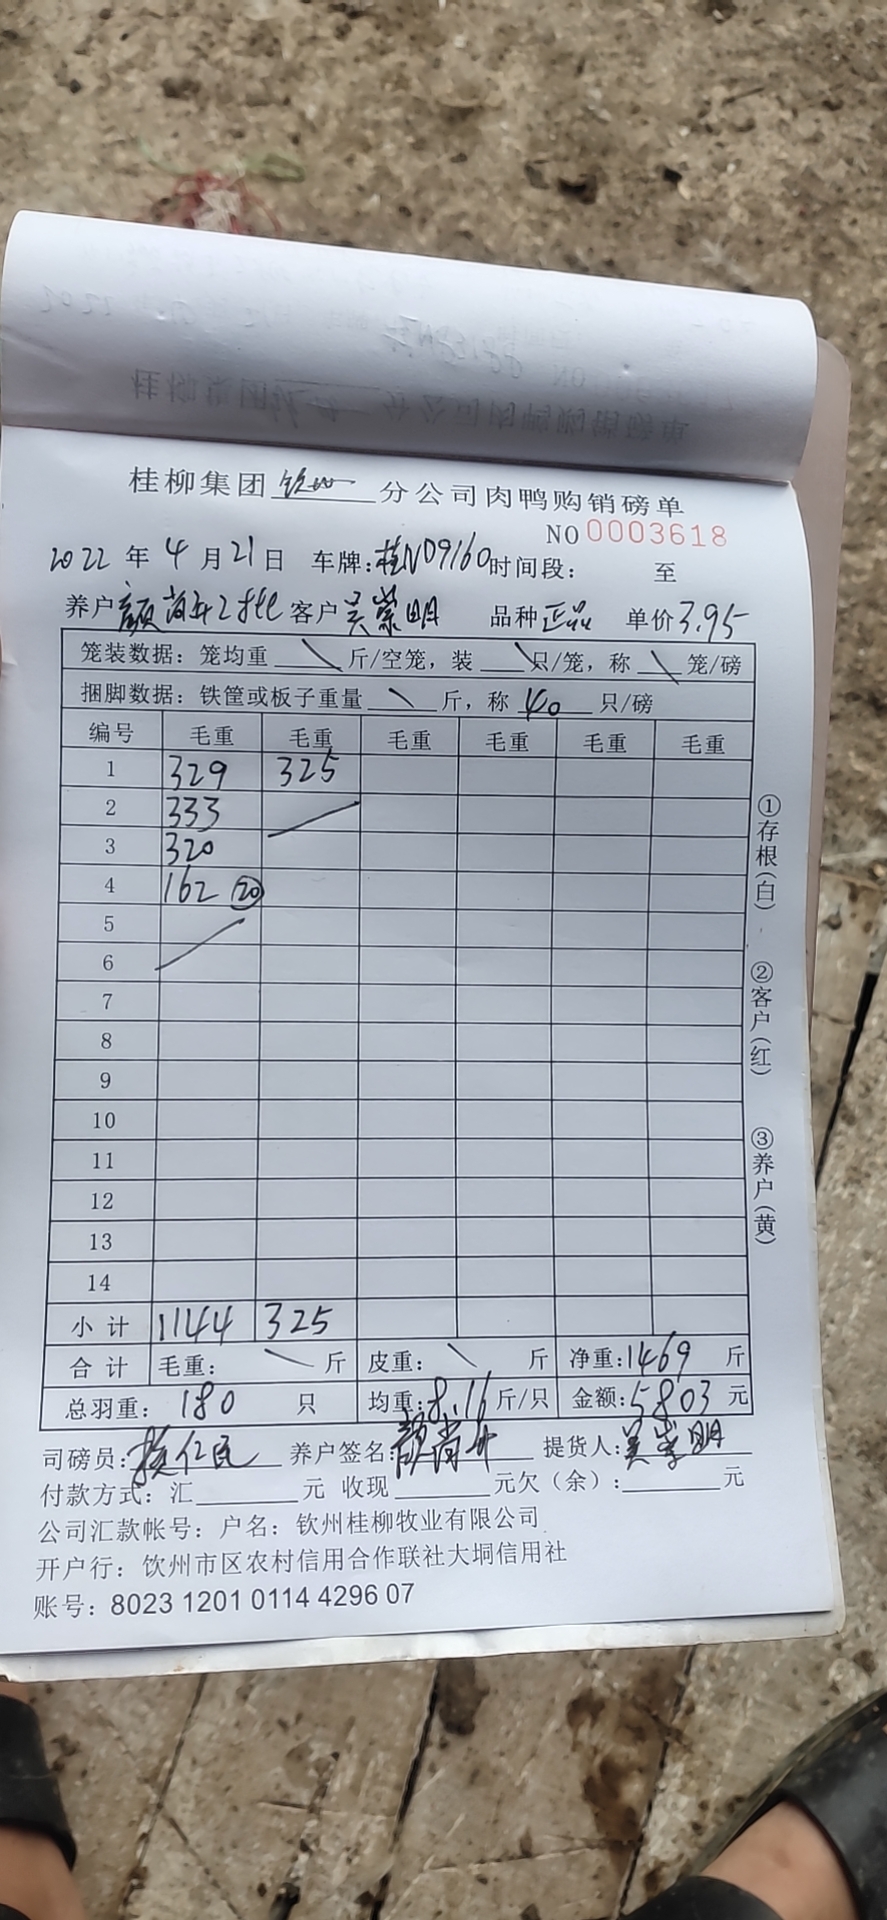 桂柳集团钦州分公司肉鸭购销磅单
NO 0003618
2022年4月21日 车牌:桂ND9160时间段: 至
养户颜尚升2批 客户吴崇明 品种正品 单价3.95
笼装数据: 笼均重\斤/空笼, 装\只/笼, 称\笼/磅
捆脚数据: 铁筐或板子重量\斤, 称40只/磅
编号 毛重 毛重 毛重 毛重 毛重 毛重
1 329 325
2 333
3 320
4 162 ⑳
5
6
7
8
9
10
11
12
13
14
小计 1144 325
合计 毛重: \ 斤 皮重: \ 斤 净重:1469 斤
总羽重: 180 只 均重:8.16斤/只 金额:5803元
司磅员: 养户签名:颜尚升 提货人:吴崇明
付款方式: 汇 元 收现 元欠(余): 元
公司汇款帐号: 户名: 钦州桂柳牧业有限公司
开户行: 钦州市区农村信用合作联社大垌信用社
账号: 8023 1201 0114 4296 07
①存根(白)
②客户(红)
③养户(黄)